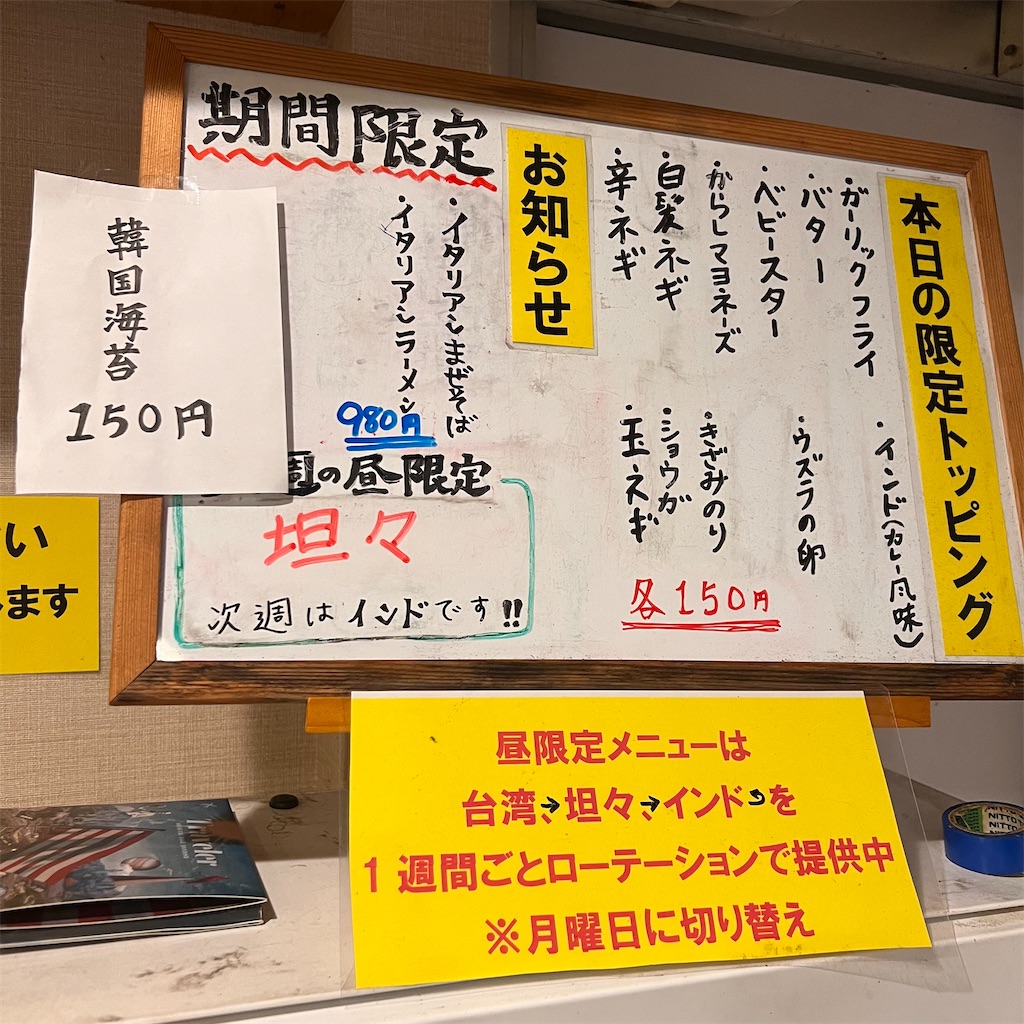 本日の限定トッピング
・ガーリックフライ
・インド(カレー風味)
・バター
・ウズラの卵
・ベビースター
・からしマヨネーズ
・きざみのり
・白髪ネギ
・ショウガ
・辛ネギ
・玉ネギ
各150円
お知らせ
期間限定
・イタリアンまぜそば
・イタリアンラーメン
980円
週の昼限定
坦々
次週はインドです!!
韓国海苔
150円
い
ます
昼限定メニューは
台湾→坦々→インド⤴を
1週間ごとローテーションで提供中
※月曜日に切り替え
NITTO
NITTO